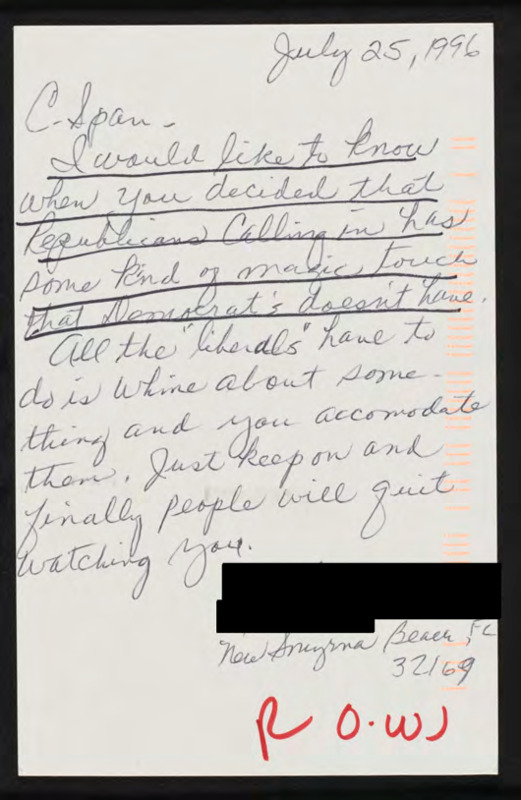 July 25, 1996
C-Span -
I would like to know
when you decided that
Republicans Calling in has
some kind of magic touch
that Democrat's doesn't have.
All the "liberals" have to
do is whine about some-
thing and you accomodate
them. Just keep on and
finally people will quit
watching you.
New Smyrna Beach, FL
32169
R O.W